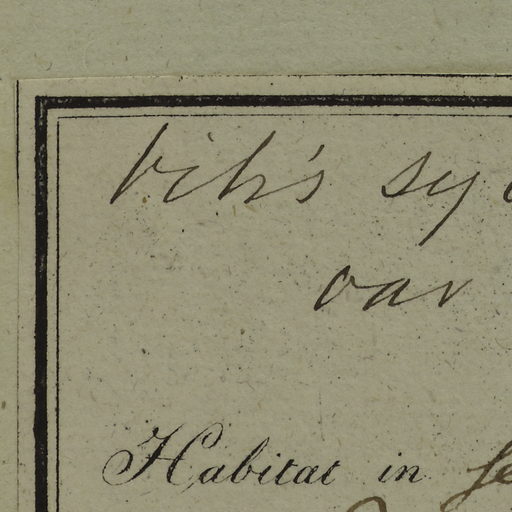 Vitis sy
var
Habitat in se